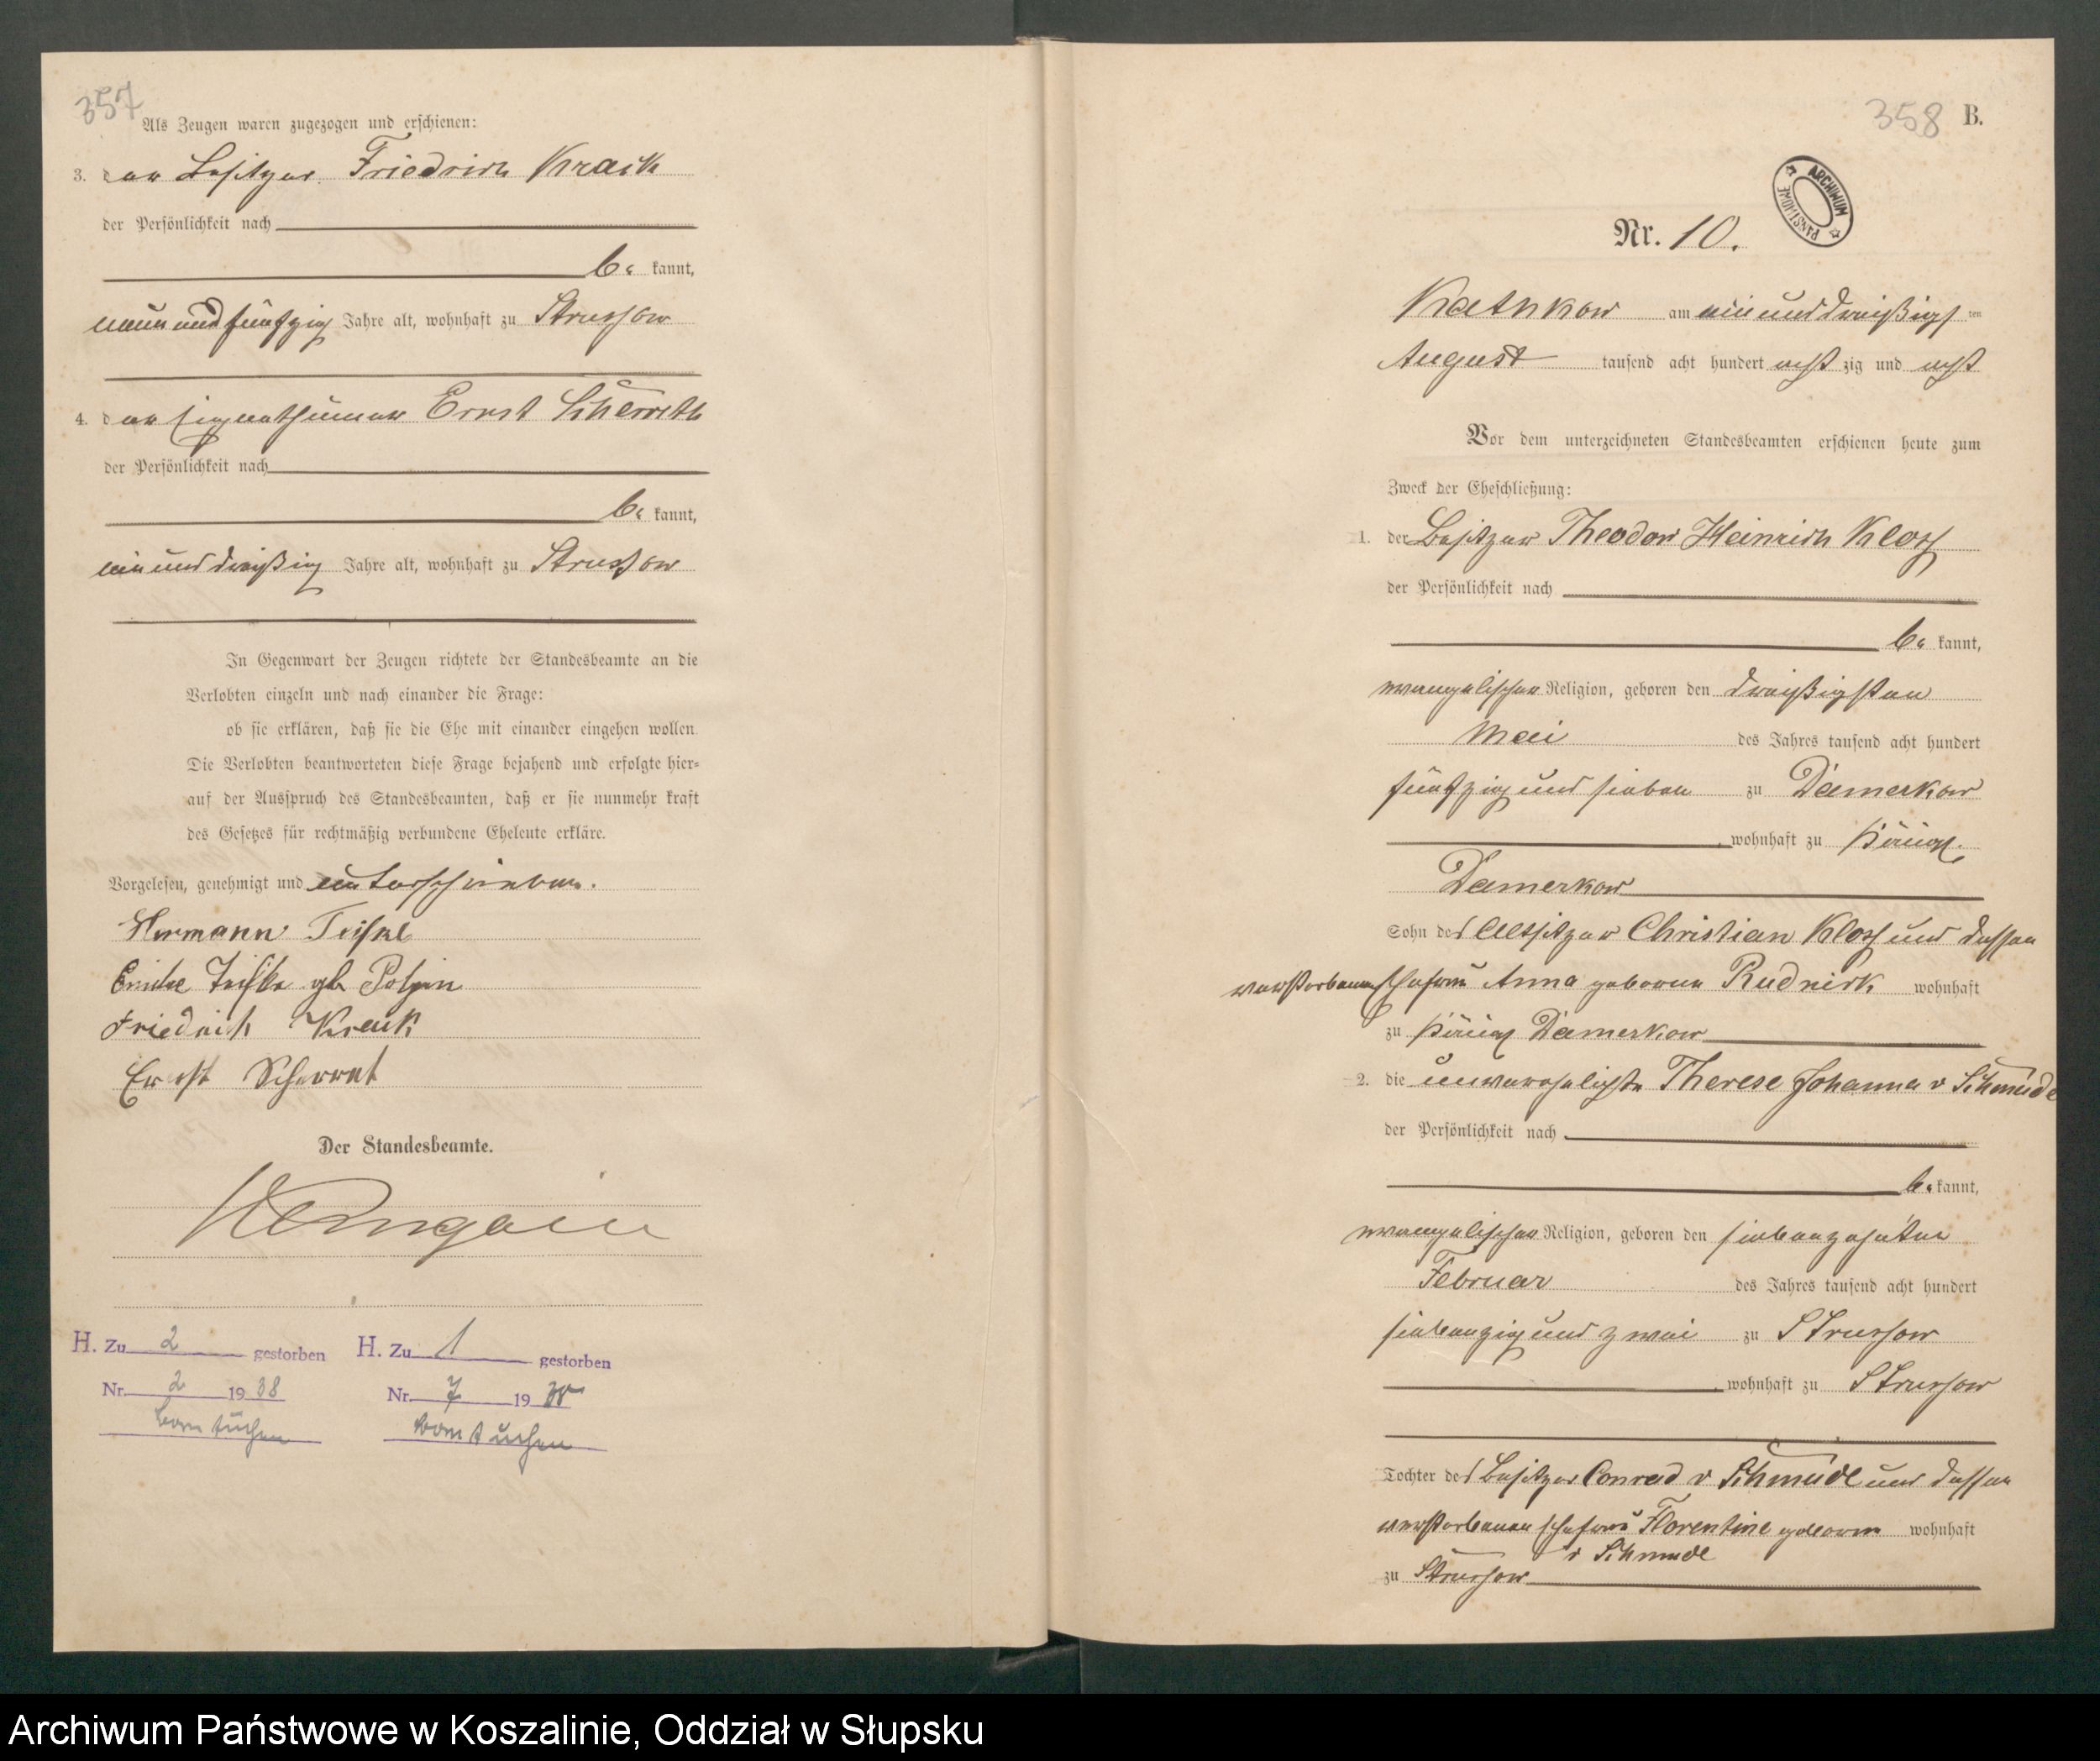 357
Als Zeugen waren zugezogen und erschienen:
3. der Besitzer Friedrich Kraik
der Persönlichkeit nach
be kannt,
neun und fünfzig Jahre alt, wohnhaft zu Strussow
4. der Eigenthümer Ernst Scherreth
der Persönlichkeit nach
be kannt,
ein und dreißig Jahre alt, wohnhaft zu Strussow
In Gegenwart der Zeugen richtete der Standesbeamte an die
Verlobten einzeln und nach einander die Frage:
ob sie erklären, daß sie die Ehe mit einander eingehen wollen.
Die Verlobten beantworteten diese Frage bejahend und erfolgte hier-
auf der Ausspruch des Standesbeamten, daß er sie nunmehr kraft
des Gesetzes für rechtmäßig verbundene Eheleute erkläre.
Vorgelesen, genehmigt und unterschrieben.
Hermann
Friedrich Kraik
Ernst Scherret
Der Standesbeamte.
H. Zu 2 gestorben
Nr. 2 1938
Borntuchen
H. Zu 1 gestorben
Nr. 7 19
Borntuchen
358 B.
ARCHIWUM PAŃSTWOWE
Nr. 10.
Kathkow am ein und dreißigs ten
August tausend acht hundert acht zig und acht
Vor dem unterzeichneten Standesbeamten erschienen heute zum
Zweck der Eheschließung:
1. der Besitzer Theodor Heinrich Kloss
der Persönlichkeit nach
be kannt,
evangelischer Religion, geboren den dreißigsten
Mai des Jahres tausend acht hundert
fünfzig und sieben zu Damerkow
wohnhaft zu
Damerkow
Sohn des Altsitzer Christian Kloss und dessen
verstorbenen Ehefrau Anna geborene Rudnick wohnhaft
zu Damerkow
2. die unverehelichte Therese Johanna v Schmude
der Persönlichkeit nach
be kannt,
evangelischer Religion, geboren den siebenzehnten
Februar des Jahres tausend acht hundert
siebenzig und zwei zu Strussow
wohnhaft zu Strussow
Tochter des Besitzer Conrad v Schmude und dessen
verstorbenen Ehefrau Florentine geborne wohnhaft
v Schmude
zu Strussow
Archiwum Państwowe w Koszalinie, Oddział w Słupsku